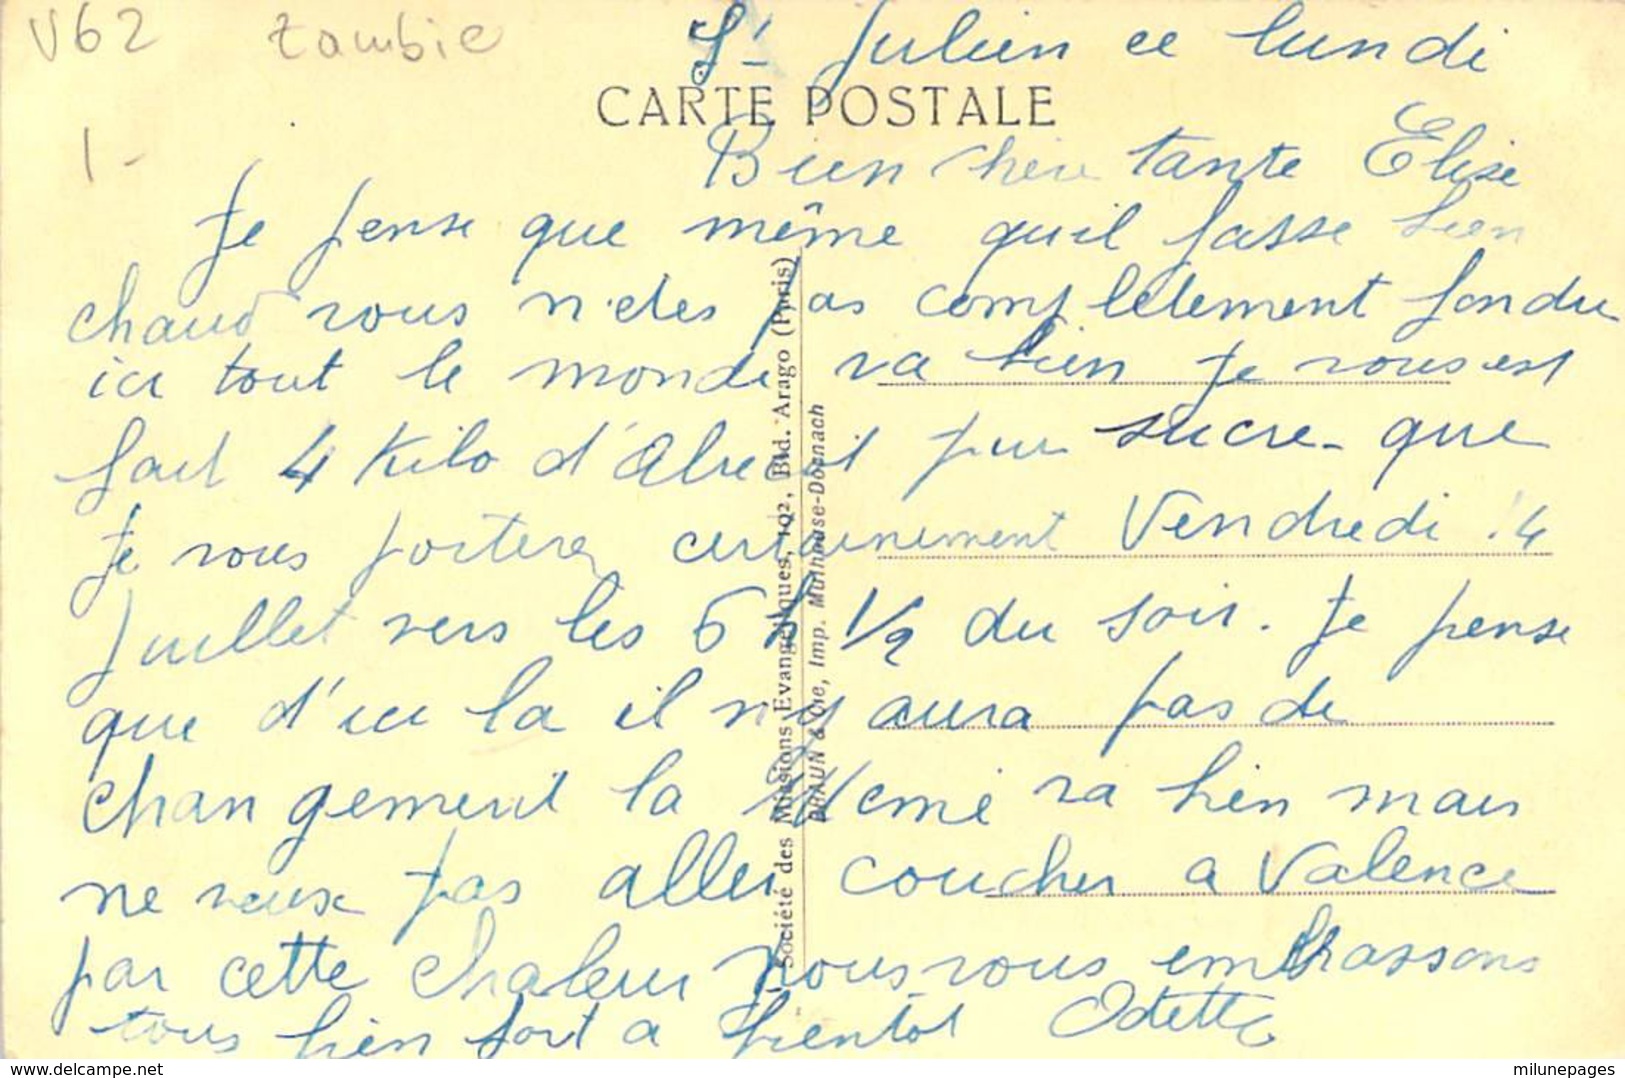 V62 Zambie
1-
CARTE POSTALE
St Julien ce lundi
Bien chère tante Elise
Je pense que même quil fasse bien
chaud vous n'etes pas completement fondu
ici tout le monde va bien Je vous est
fait 4 Kilo d'Abricot pur sucre - que
Je vous porterez certainement Vendredi 14
Juillet vers les 6 h 1/2 du soir. Je pense
que d'ici la il n'y aura pas de
changement la va bien mais
ne veux pas aller coucher a Valence
par cette chaleur Nous vous embrassons
tous bien fort a bientot Odette
Société des Missions Evangéliques, 102, Bld. Arago (Paris)
BRAUN & Cie, Imp. Mulhouse-Dornach
delcampe.net
milunepages